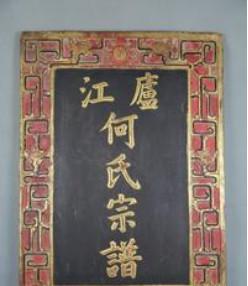 廬江
何氏宗譜